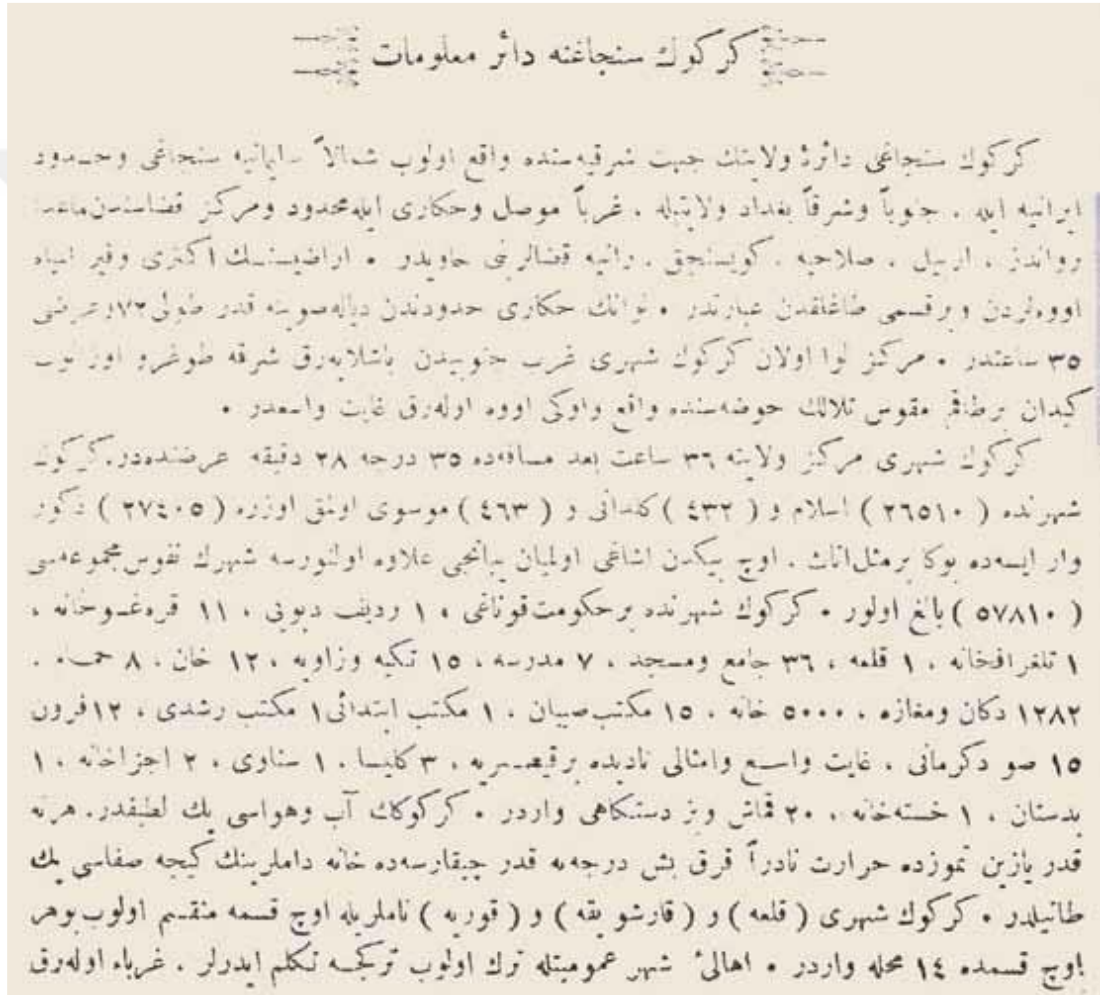 كركوك سنجاغنه دائر معلومات
كركوك سنجاغی دائرۀ ولايتك جهت شرقيه سنده واقع اولوب شمالاً سليمانيه سنجاغی وحدود
ايرانيه ايله ، جنوباً وشرقاً بغداد ولايتيله ، غرباً موصل وحكاری ايله محدود ومركز قضاسندن ماعدا
رواندز ، اربيل ، صلاحيه ، كويسنجق ، رانيه قضالرينی حاويدر ٠ اراضيسنك اكثری وقير انباه
اووه لردن وبرقسمی طاغلقدن عبارتدر ٠ لوانك حكاری حدودندن دياله صوينه قدر طولی ٧٢ وعرضی
٣٥ ساعتدر ٠ مركز لوا اولان كركوك شهری غرب جنوبيدن باشلايه رق شرقه طوغرو اوزانوب
كيدان برطاقم مقوس تلالك حوضه سنده واقع واوكی اووه اوله رق غايت واسعدر ٠
كركوك شهری مركز ولايته ٣٦ ساعت بعد مسافه ده ٣٥ درجه ٢٨ دقيقه عرضنده در. كركوك
شهرنده ( ٢٦٥١٠ ) اسلام و ( ٤٣٢ ) كلدانی و ( ٤٦٣ ) موسوی اولمق اوزره ( ٢٧٤٠٥ ) ذكور
وار ايسه ده بوكا برمثل اناث ، اوچ بيكدن اشاغی اولميان يبانجی علاوه اولنورسه شهرك نفوس مجموعه سی
( ٥٧٨١٠ ) بالغ اولور ٠ كركوك شهرنده برحكومت قوناغی ، ١ رديف دبويی ، ١١ قره غولخانه ،
١ تلغرافخانه ، ١ قلعه ، ٣٦ جامع ومسجد ، ٧ مدرسه ، ١٥ تكيه وزاويه ، ١٢ خان ، ٨ حمام ،
١٢٨٢ دكان ومغازه ، ٥٠٠٠ خانه ، ١٥ مكتب صبيان ، ١ مكتب ابتدائی ١ مكتب رشدی ، ١٢ فرون
١٥ صو دكرمانی ، غايت واسع وامثالی ناديده برقيصريه ، ٣ كليسا ، ١ سناوی ، ٢ اجزاخانه ، ١
بدستان ، ١ خسته خانه ، ٢٠ قماش وبز دستكاهی واردر ٠ كركوكك آب وهواسی پك لطيفدر. هر نه
قدر يازين تموزده حرارت نادراً قرق بش درجه يه قدر چيقارسه ده خانه داملرينك كيجه صفاسی پك
طاتليدر ٠ كركوك شهری ( قلعه ) و ( قارشو يقه ) و ( قوريه ) ناملريله اوچ قسمه منقسم اولوب بوهر
اوچ قسمده ١٤ محله واردر ٠ اهالئ شهر عموميتله ترك اولوب تركجه تكلم ايدرلر . غرباء اوله رق